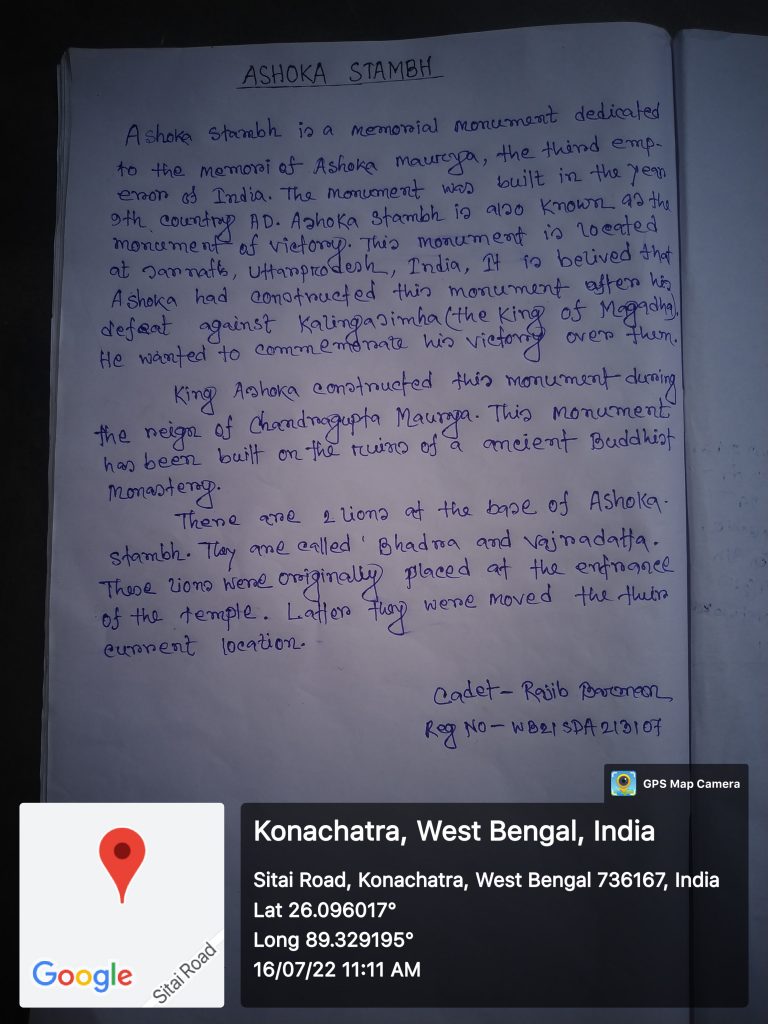 ASHOKA STAMBH
Ashoka stambh is a memorial monument dedicated
to the memori of Ashoka maurya, the third emp-
eror of India. The monument was built in the year
9th country AD. Ashoka Stambh is also known as the
monument of victory. This monument is located
at sarnath, Uttarprodesh, India, It is belived that
Ashoka had constructed this monument after his
defeat against Kalingasimha (the King of Magadha).
He wanted to commemorate his victory over them.
King Ashoka constructed this monument during
the reign of Chandragupta Maurya. This Monument
has been built on the ruins of a ancient Buddhist
Monastery.
There are 2 lions at the base of Ashoka-
stambh. They are called 'Bhadra and Vajradatta.
These lions were originally placed at the entrance
of the temple. Latter they were moved the their
current location.
Cadet - Rajib Barman
Reg No - WB21SDA213107
GPS Map Camera
Konachatra, West Bengal, India
Sitai Road, Konachatra, West Bengal 736167, India
Lat 26.096017°
Long 89.329195°
16/07/22 11:11 AM
Google
Sitai Road